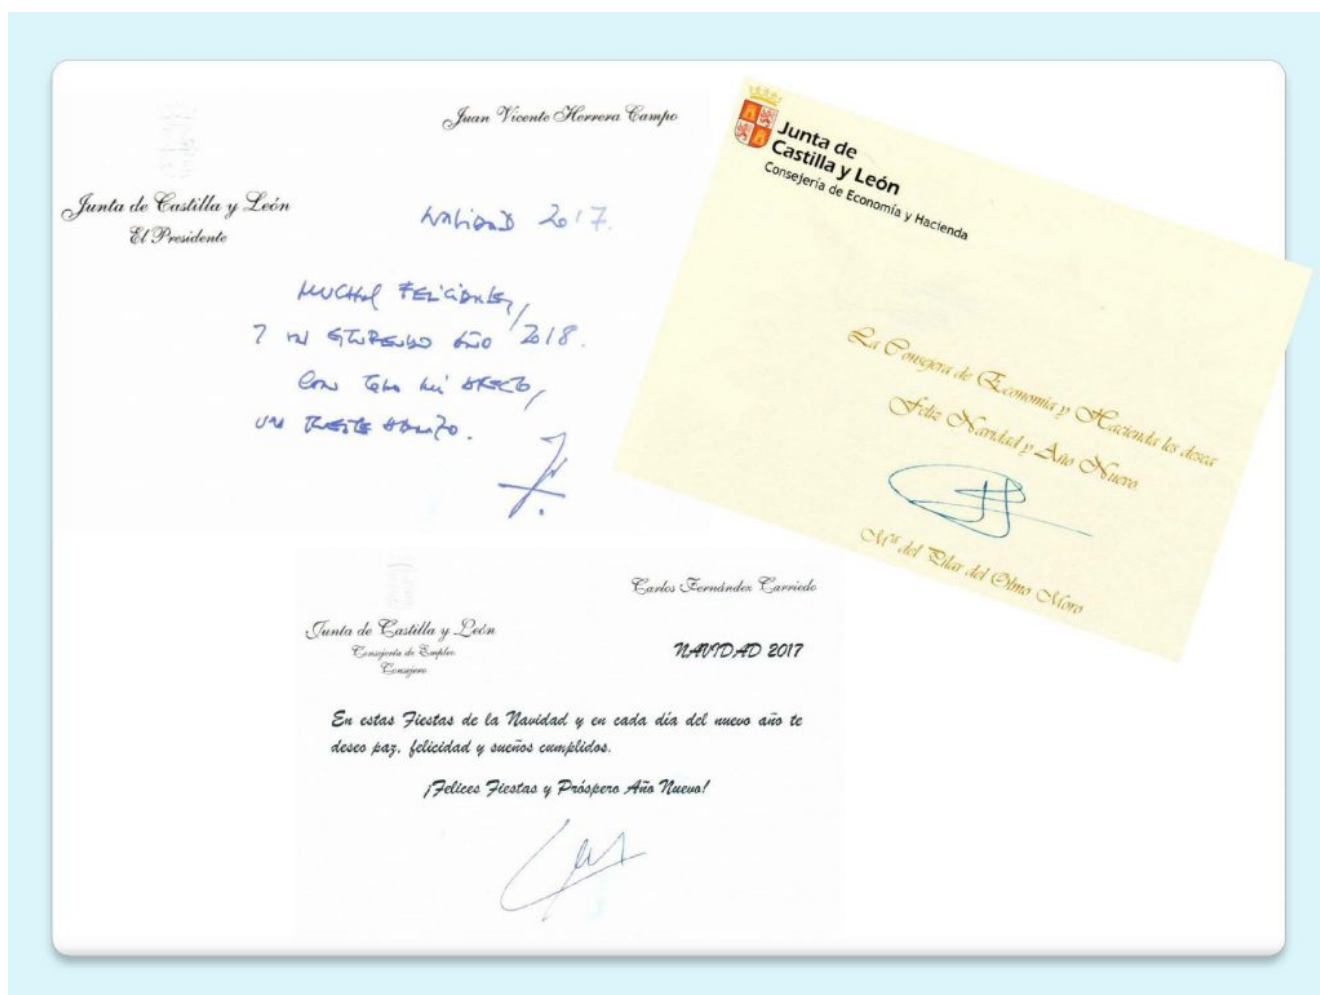 Juan Vicente Herrera Campo
Junta de Castilla y León
El Presidente
NAVIDAD 2017.
MUCHAS FELICIDADES,
Y UN ESTUPENDO AÑO 2018.
CON TODO MI AFECTO,
UN FUERTE ABRAZO.
Junta de
Castilla y León
Consejería de Economía y Hacienda
La Consejera de Economía y Hacienda les desea
Feliz Navidad y Año Nuevo
Mª del Pilar del Olmo Moro
Carlos Fernández Carriedo
Junta de Castilla y León
Consejería de Empleo
Consejero
NAVIDAD 2017
En estas Fiestas de la Navidad y en cada día del nuevo año te
deseo paz, felicidad y sueños cumplidos.
¡Felices Fiestas y Próspero Año Nuevo!